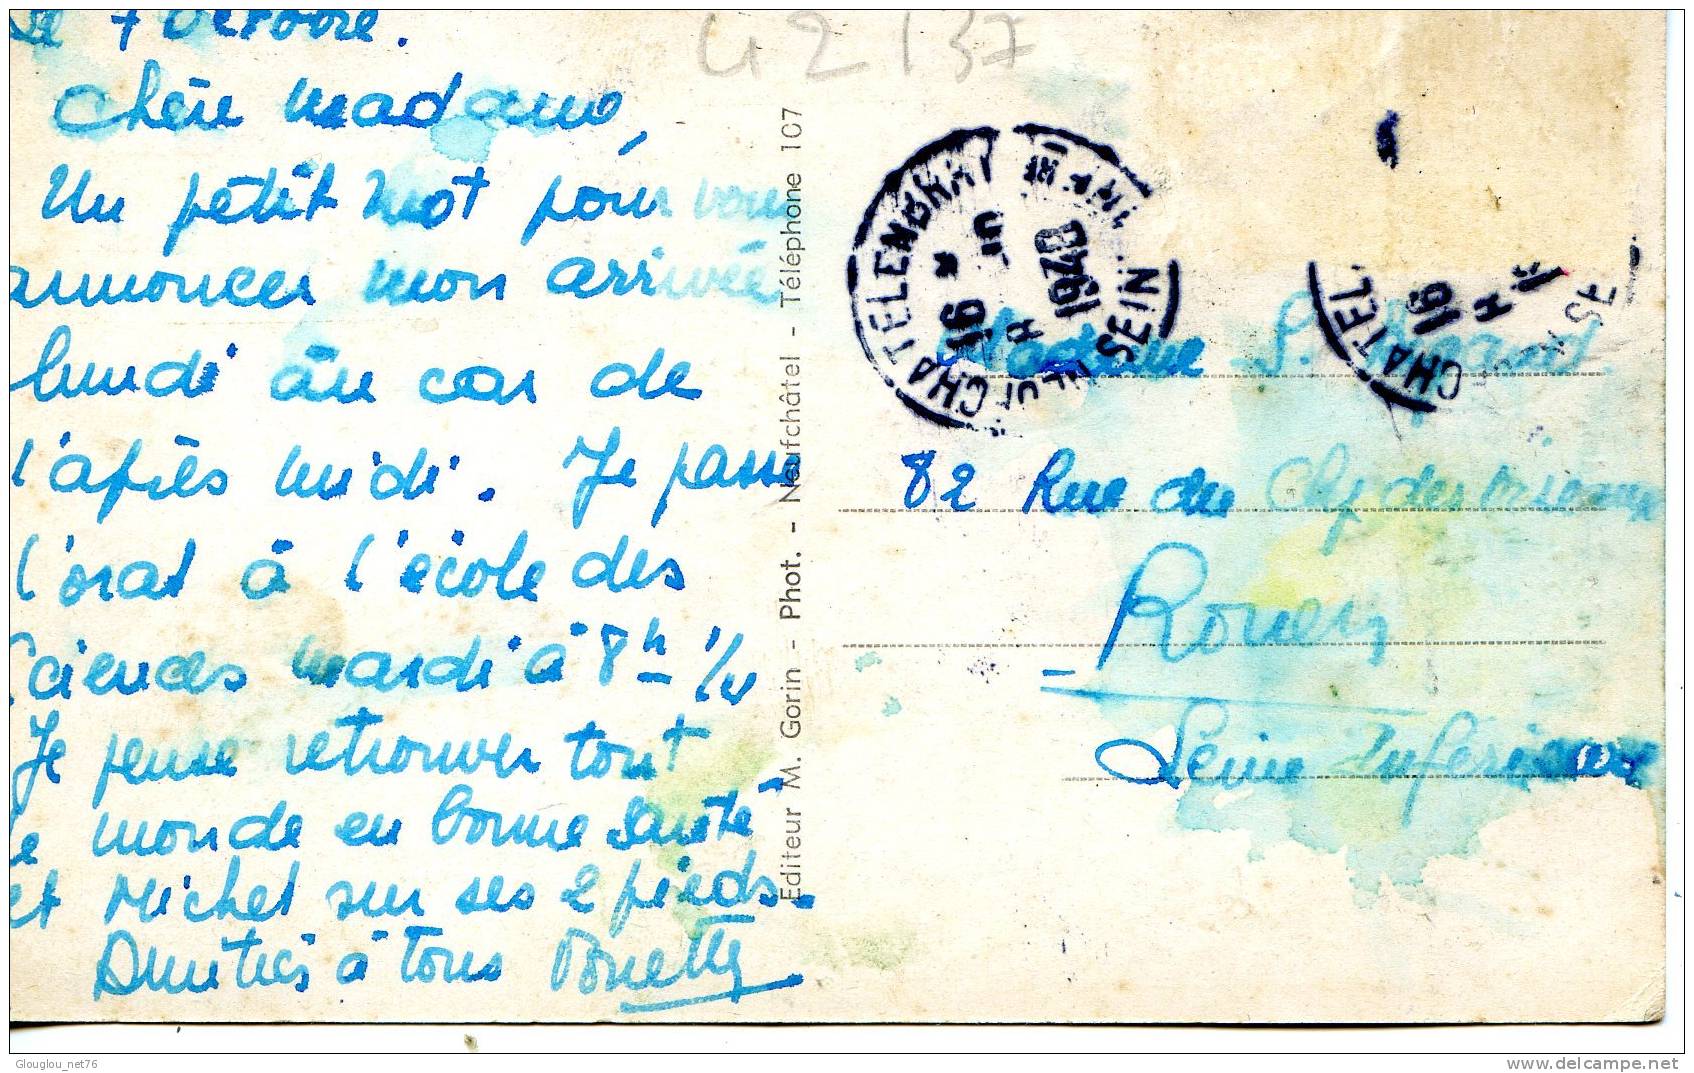 Le 7 octobre.
Chère Madame,
Un petit mot pour vous
annoncer mon arrivée
lundi au car de
l'après midi. Je passe
l'oral à l'école des
Sciences mardi à 8h 1/2
Je pense retrouver tout
le monde en bonne santé
et Michel sur ses 2 pieds.
Amitiés à tous
Editeur M. Gorin - Phot. - Neufchâtel - Téléphone 107
42137
NEUFCHATEL EN BRAY
16 H
10
1948
SEINE
CHATEL
16 H
Madame S.
82 Rue du Clos des
Rouen
Seine Inférieure
Glouglou_net76
www.delcampe.net